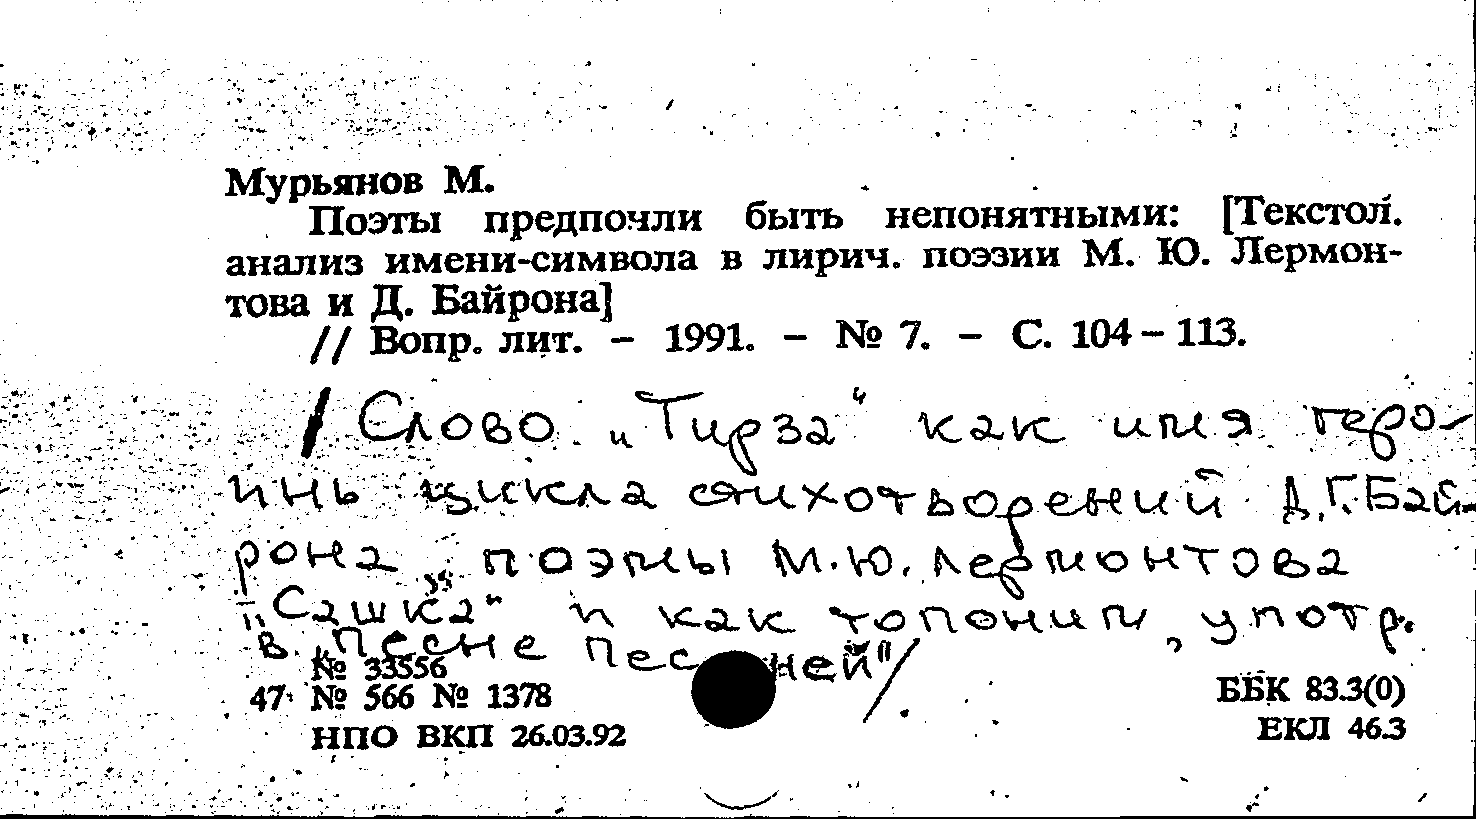 Мурьянов М.
Поэты предпочли быть непонятными: [Текстол.
анализ имени-символа в лирич. поэзии М. Ю. Лермон-
това и Д. Байрона]
// Вопр. лит. – 1991. – № 7. – С. 104 – 113.
/ Слово „Тирза“ как имя геро-
инь цикла стихотворений Д.Г.Бай-
рона, поэмы М.Ю.Лермонтова
„Сашка“ и как топоним, употр.
в „Песне Песней"/
№ 33556
47 № 566 № 1378
НПО ВКП 26.03.92
ББК 83.3(0)
ЕКЛ 46.3